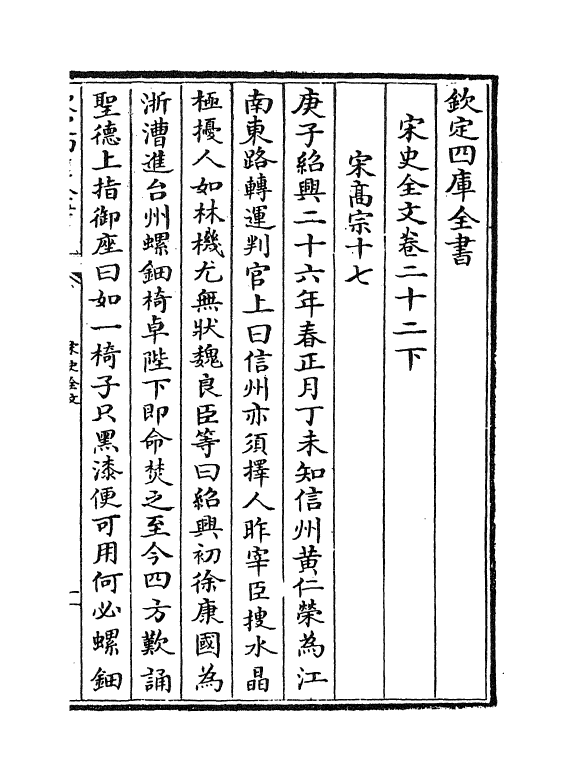 欽定四庫全書
宋史全文卷二十二下
宋髙宗十七
庚子紹興二十六年春正月丁未知信州黄仁榮為江
南東路轉運判官上曰信州亦須擇人昨宰臣搜水晶
極擾人如林機尤無狀魏良臣等曰紹興初徐康國為
浙漕進台州螺鈿椅卓陛下即命焚之至今四方歎誦
聖德上指御座曰如一椅子只黑漆便可用何必螺鈿
宋史全文